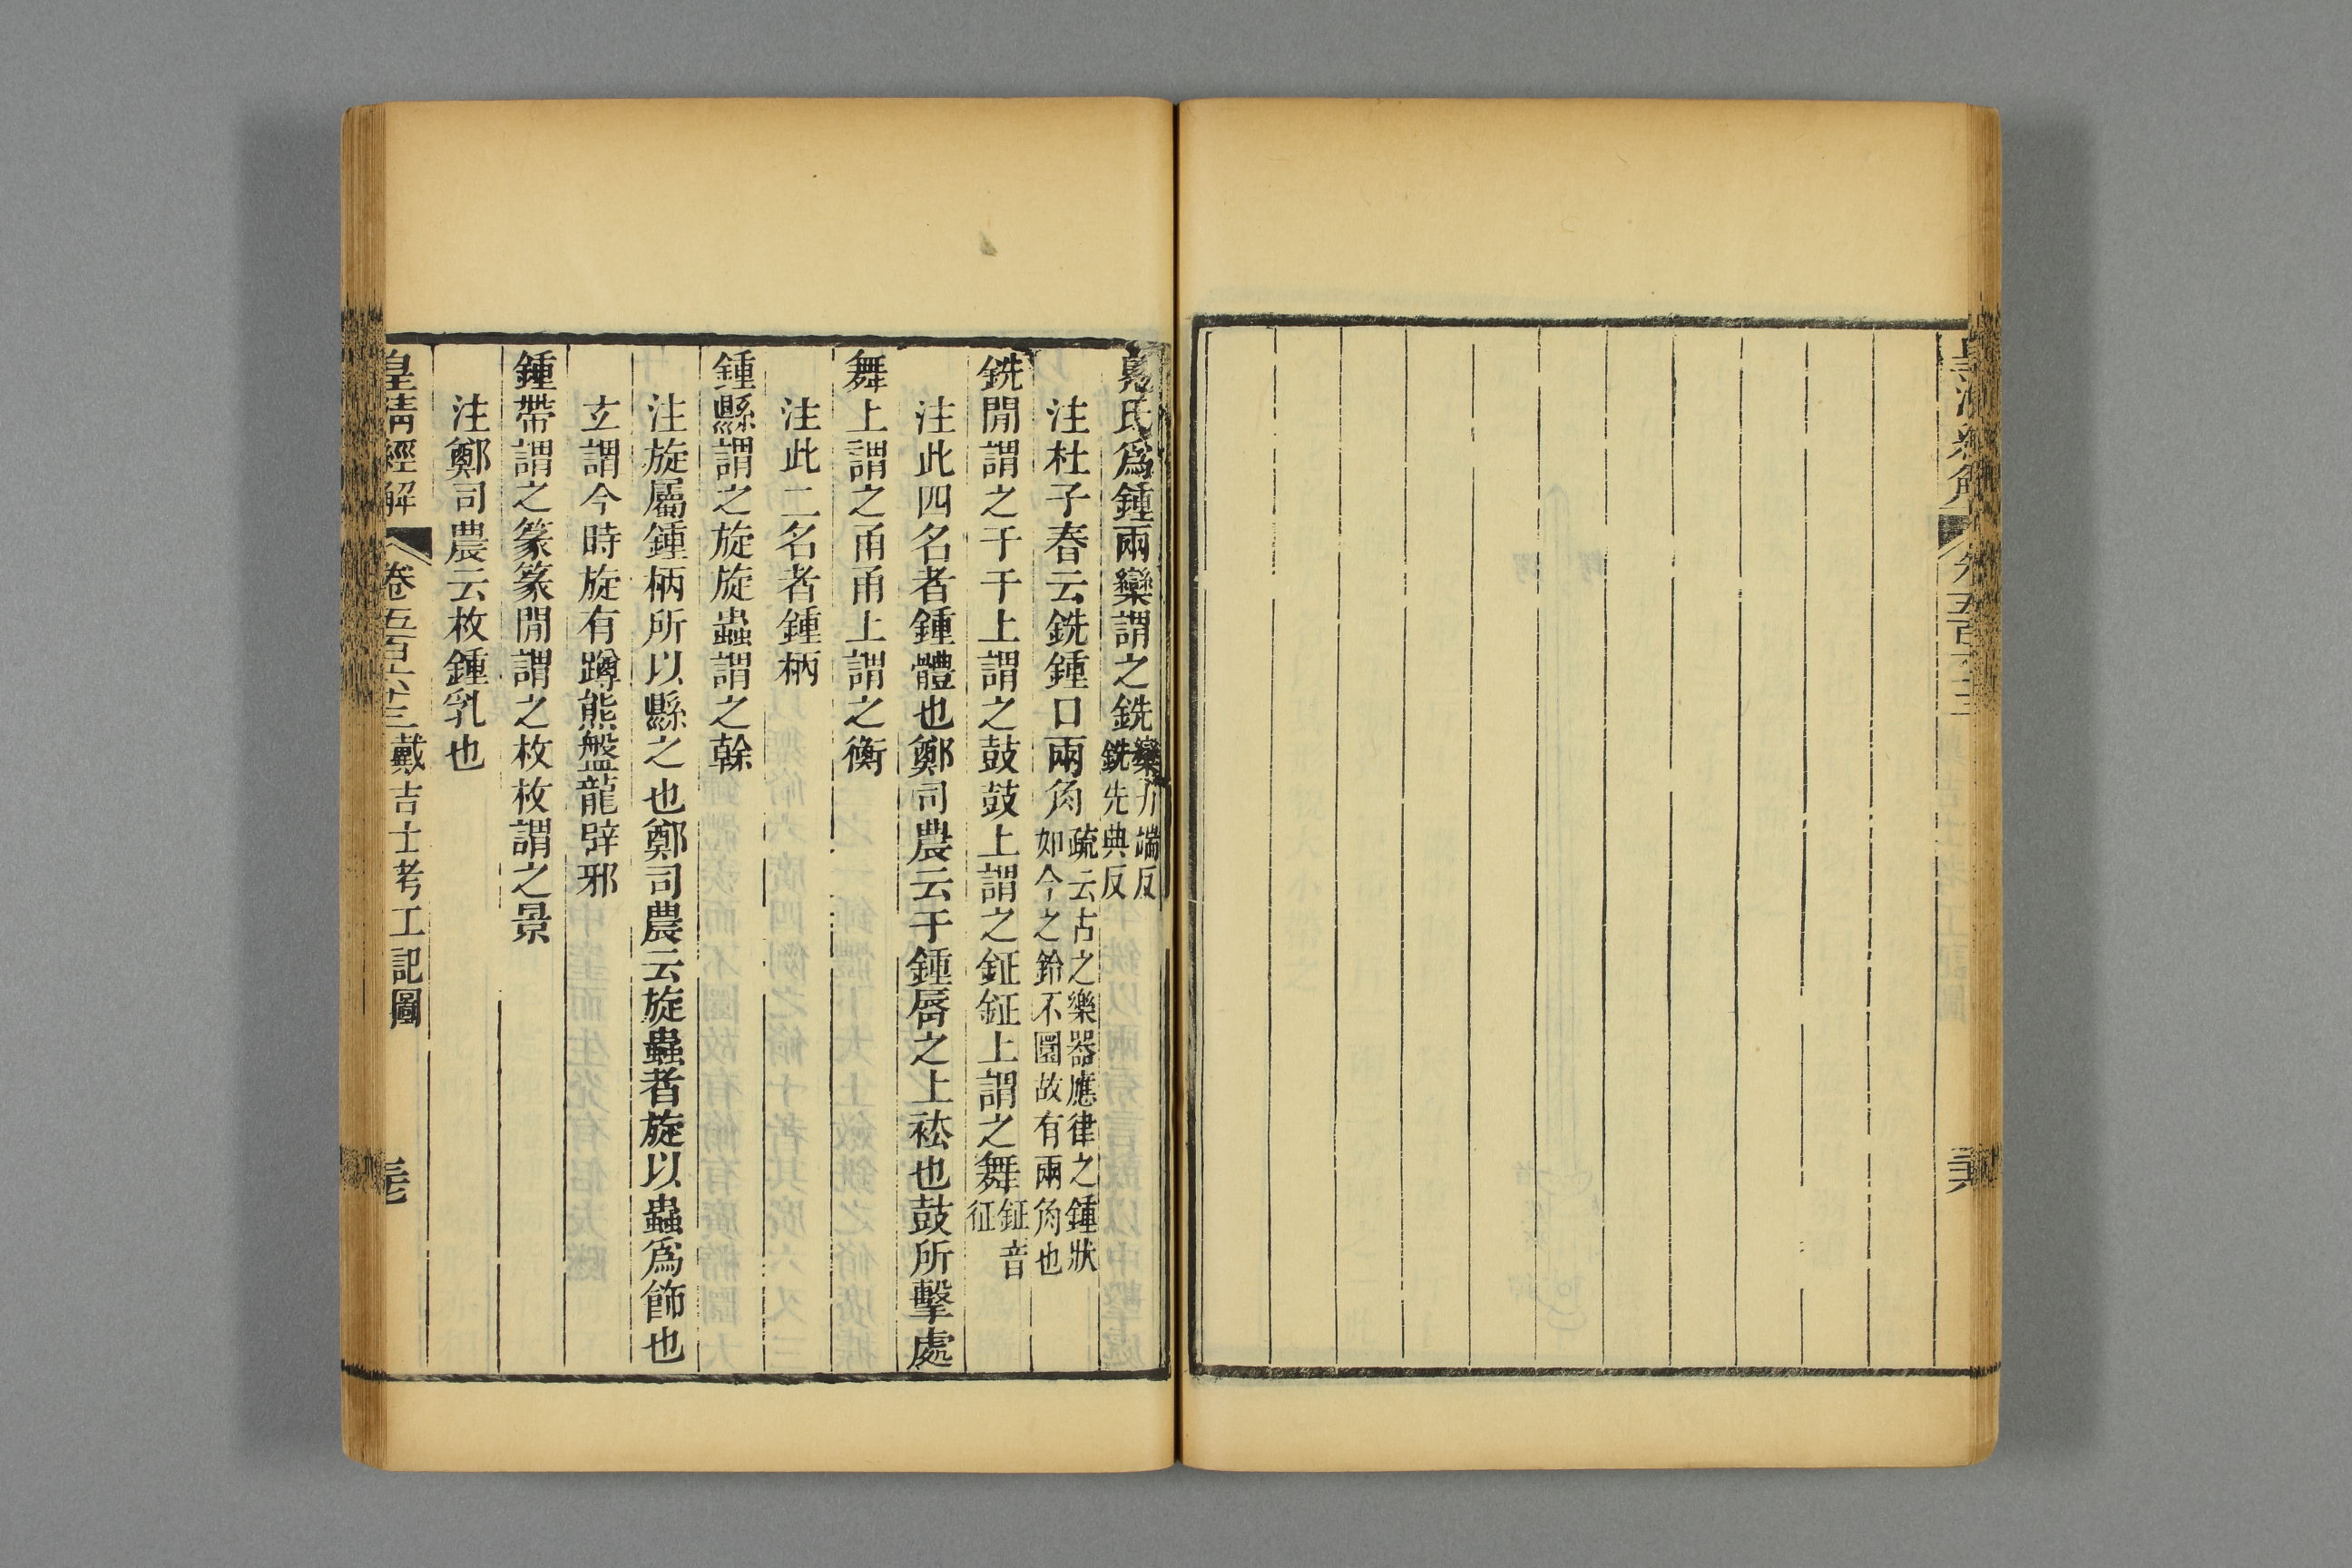 鳧氏爲鍾兩欒謂之銑欒力端反銑先典反
注杜子春云銑鍾口兩角疏云古之樂器應律之鍾狀如今之鈴不圜故有兩角也
銑閒謂之于于上謂之鼓鼓上謂之鉦鉦上謂之舞鉦音征
注此四名者鍾體也鄭司農云于鍾脣之上袪也鼓所擊處
舞上謂之甬甬上謂之衡
注此二名者鍾柄
鍾縣謂之旋旋蟲謂之榦
注旋屬鍾柄所以縣之也鄭司農云旋蟲者旋以蟲爲飾也
玄謂今時旋有蹲熊盤龍辟邪
鍾帶謂之篆篆閒謂之枚枚謂之景
注鄭司農云枚鍾乳也
皇清經解 卷五百六十三 戴吉士考工記圖